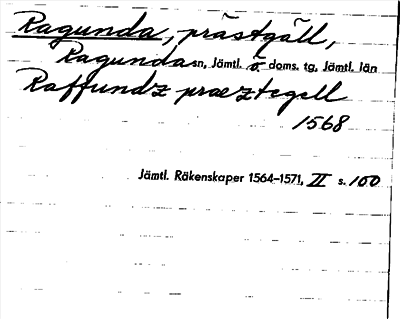 Ragunda, prästgäll,
Ragunda sn, Jämtl. ö. doms. tg, Jämtl. län
Raffundz præztegell
1568
Jämtl. Räkenskaper 1564–1571, II s. 100